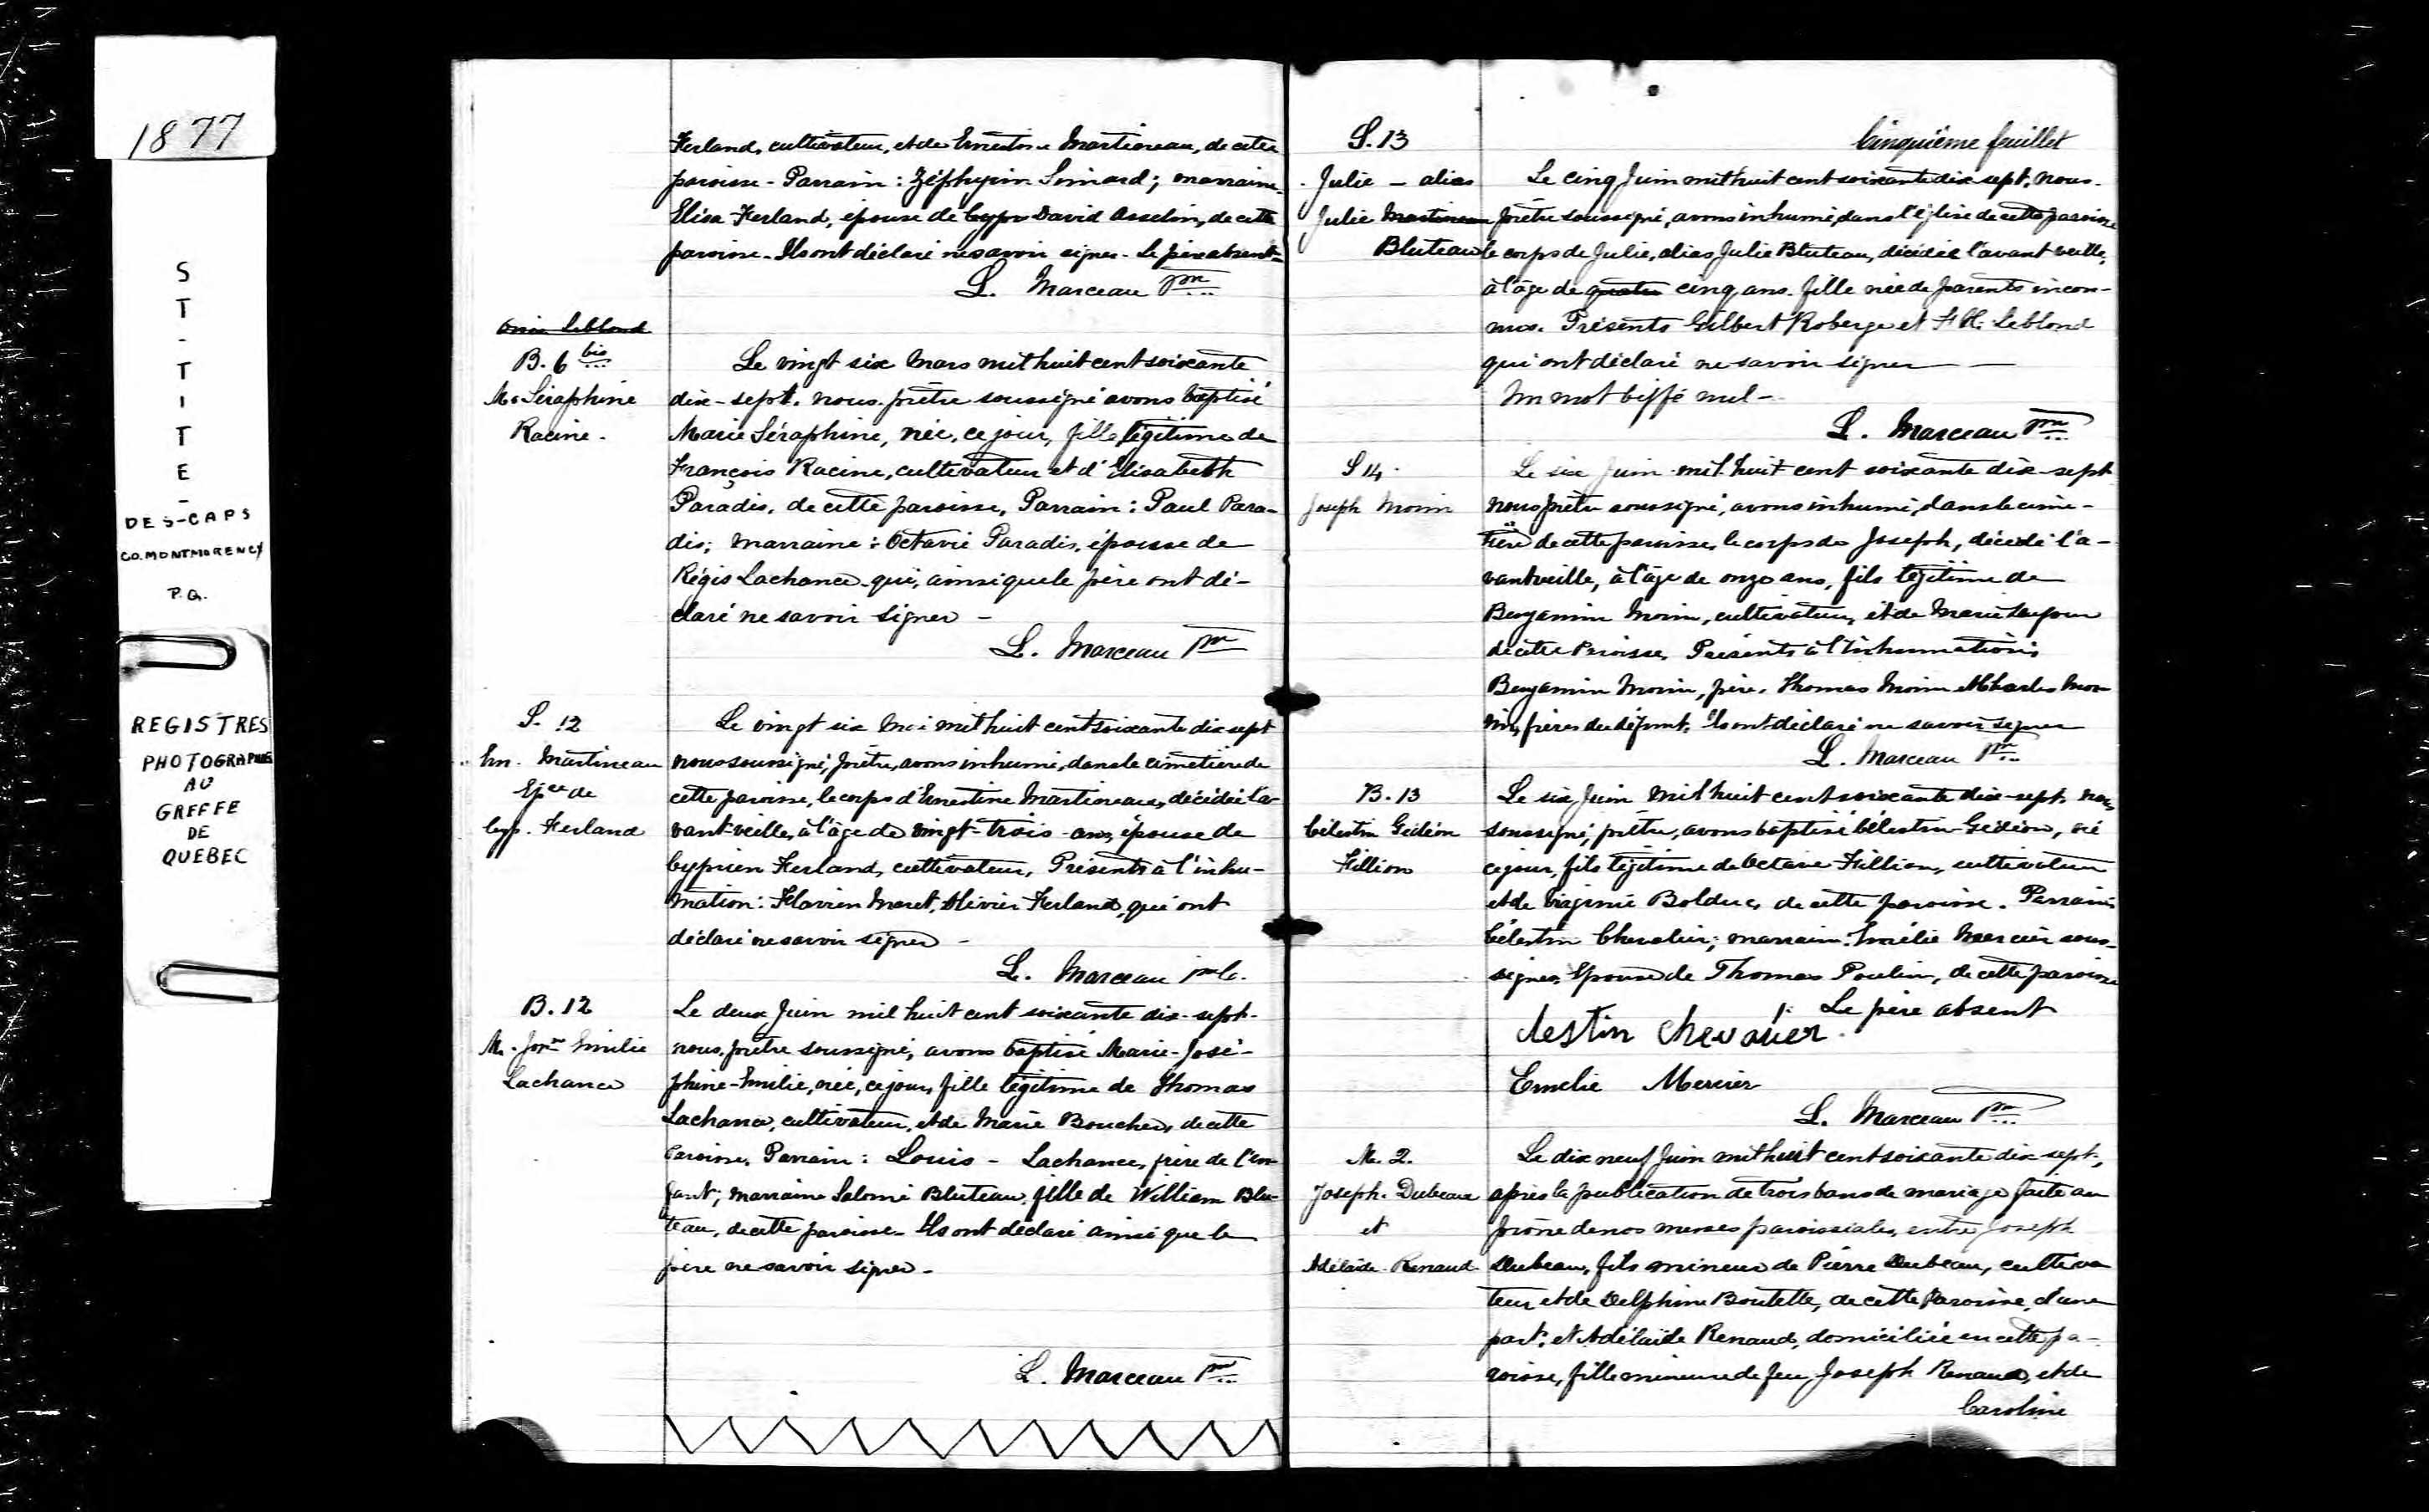 1877
ST-TITE-
DES-CAPS
CO. MONTMORENCY
P.Q.
REGISTRES
PHOTOGRAPHIÉS
AU
GREFFE
DE
QUEBEC
Ferland, cultivateur, et de Ernestine Martineau, de cette
paroisse - Parrain: Zéphyrin Simard; marraine
Elisa Ferland, épouse de Cypr David Asselin, de cette
paroisse. Ils ont déclaré ne savoir signer. Le père absent -
L. Marceau Ptre
Leblond
B. 6 bis
M. Séraphine
Racine.
Le vingt six Mars mil huit cent soixante
dix-sept. nous prêtre soussigné avons baptisé
Marie Séraphine, née, ce jour, fille légitime de
François Racine, cultivateur et d'Elisabeth
Paradis, de cette paroisse, Parrain: Paul Para-
dis; Marraine: Octavie Paradis, épouse de
Régis Lachance qui, ainsi que le père ont dé-
claré ne savoir signer -
L. Marceau Ptre
S. 12
Ern. Martineau
Epse de
Cyp. Ferland
Le vingt six Mai mil huit cent soixante dix sept
nous soussigné, prêtre, avons inhumé, dans le cimetière de
cette paroisse, le corps d'Ernestine Martineau, décédée l'a-
vant-veille, à l'âge de vingt-trois ans, épouse de
Cyprien Ferland, cultivateur, Présents à l'inhu-
mation: Flavien Moret, Olivier Ferland, qui ont
déclaré ne savoir signer -
L. Marceau
B. 12
M. Jos.ne Emilie
Lachance
Le deux Juin mil huit cent soixante dix-sept.
nous, prêtre soussigné, avons baptisé Marie-José-
phine-Emilie, née, ce jour, fille légitime de Thomas
Lachance, cultivateur, et de Marie Boucher, de cette
Paroisse, Parrain: Louis - Lachance, frère de l'en-
fant; marraine Salomé Bluteau, fille de William Blu-
teau, de cette paroisse. Ils ont déclaré ainsi que le
père ne savoir signer -
L. Marceau Ptre
Cinquième feuillet
S. 13
Julie - alias
Julie Martineau
Bluteau
Le cinq Juin mil huit cent soixante dix sept, nous
prêtre soussigné, avons inhumé, dans l'église de cette paroisse
le corps de Julie, alias Julie Bluteau, décédée l'avant veille,
à l'âge de quatre cinq ans. fille née de parents incon-
nus. Présents Gilbert Roberge et F H. Leblond
qui ont déclaré ne savoir signer -
Un mot biffé nul -
L. Marceau Ptre
S 14.
Joseph Morin
Le six Juin mil huit cent soixante dix-sept
nous prêtre soussigné, avons inhumé, dans le cime-
tière de cette paroisse, le corps de Joseph, décédé l'a-
vant veille, à l'âge de onze ans, fils légitime de
Benjamin Morin, cultivateur, et de Marie
de cette Paroisse, Présents à l'inhumation:
Benjamin Morin, père, Thomas Morin et Charles Mo-
rin, frères du défunt. Ils ont déclaré ne savoir signer
L. Marceau Ptre
B. 13
Célestin Gédéon
Fillion
Le six Juin mil huit cent soixante dix-sept nous
soussigné, prêtre, avons baptisé Célestin-Gédéon, né
ce jour, fils légitime de Octave Fillion, cultivateur
et de Virginie Bolduc, de cette paroisse. Parrain
Célestin Chevalier; marraine: Emélie Mercier sous-
signés, Epouse de Thomas Poulin, de cette paroisse
Le père absent
Célestin Chevalier
Emelie Mercier
L. Marceau Ptre
M. 2.
Joseph Dubeau
et
Adélaïde Renaud
Le dix neuf Juin mil huit cent soixante dix sept,
après la publication de trois bans de mariage faite au
prône de nos messes paroissiales, entre Joseph
Dubeau, fils mineur de Pierre Dubeau, cultiva
teur et de Delphine Boutelle, de cette Paroisse, d'une
part; et Adélaïde Renaud, domiciliée en cette pa-
roisse, fille mineure de feu Joseph Renaud, et de
Caroline